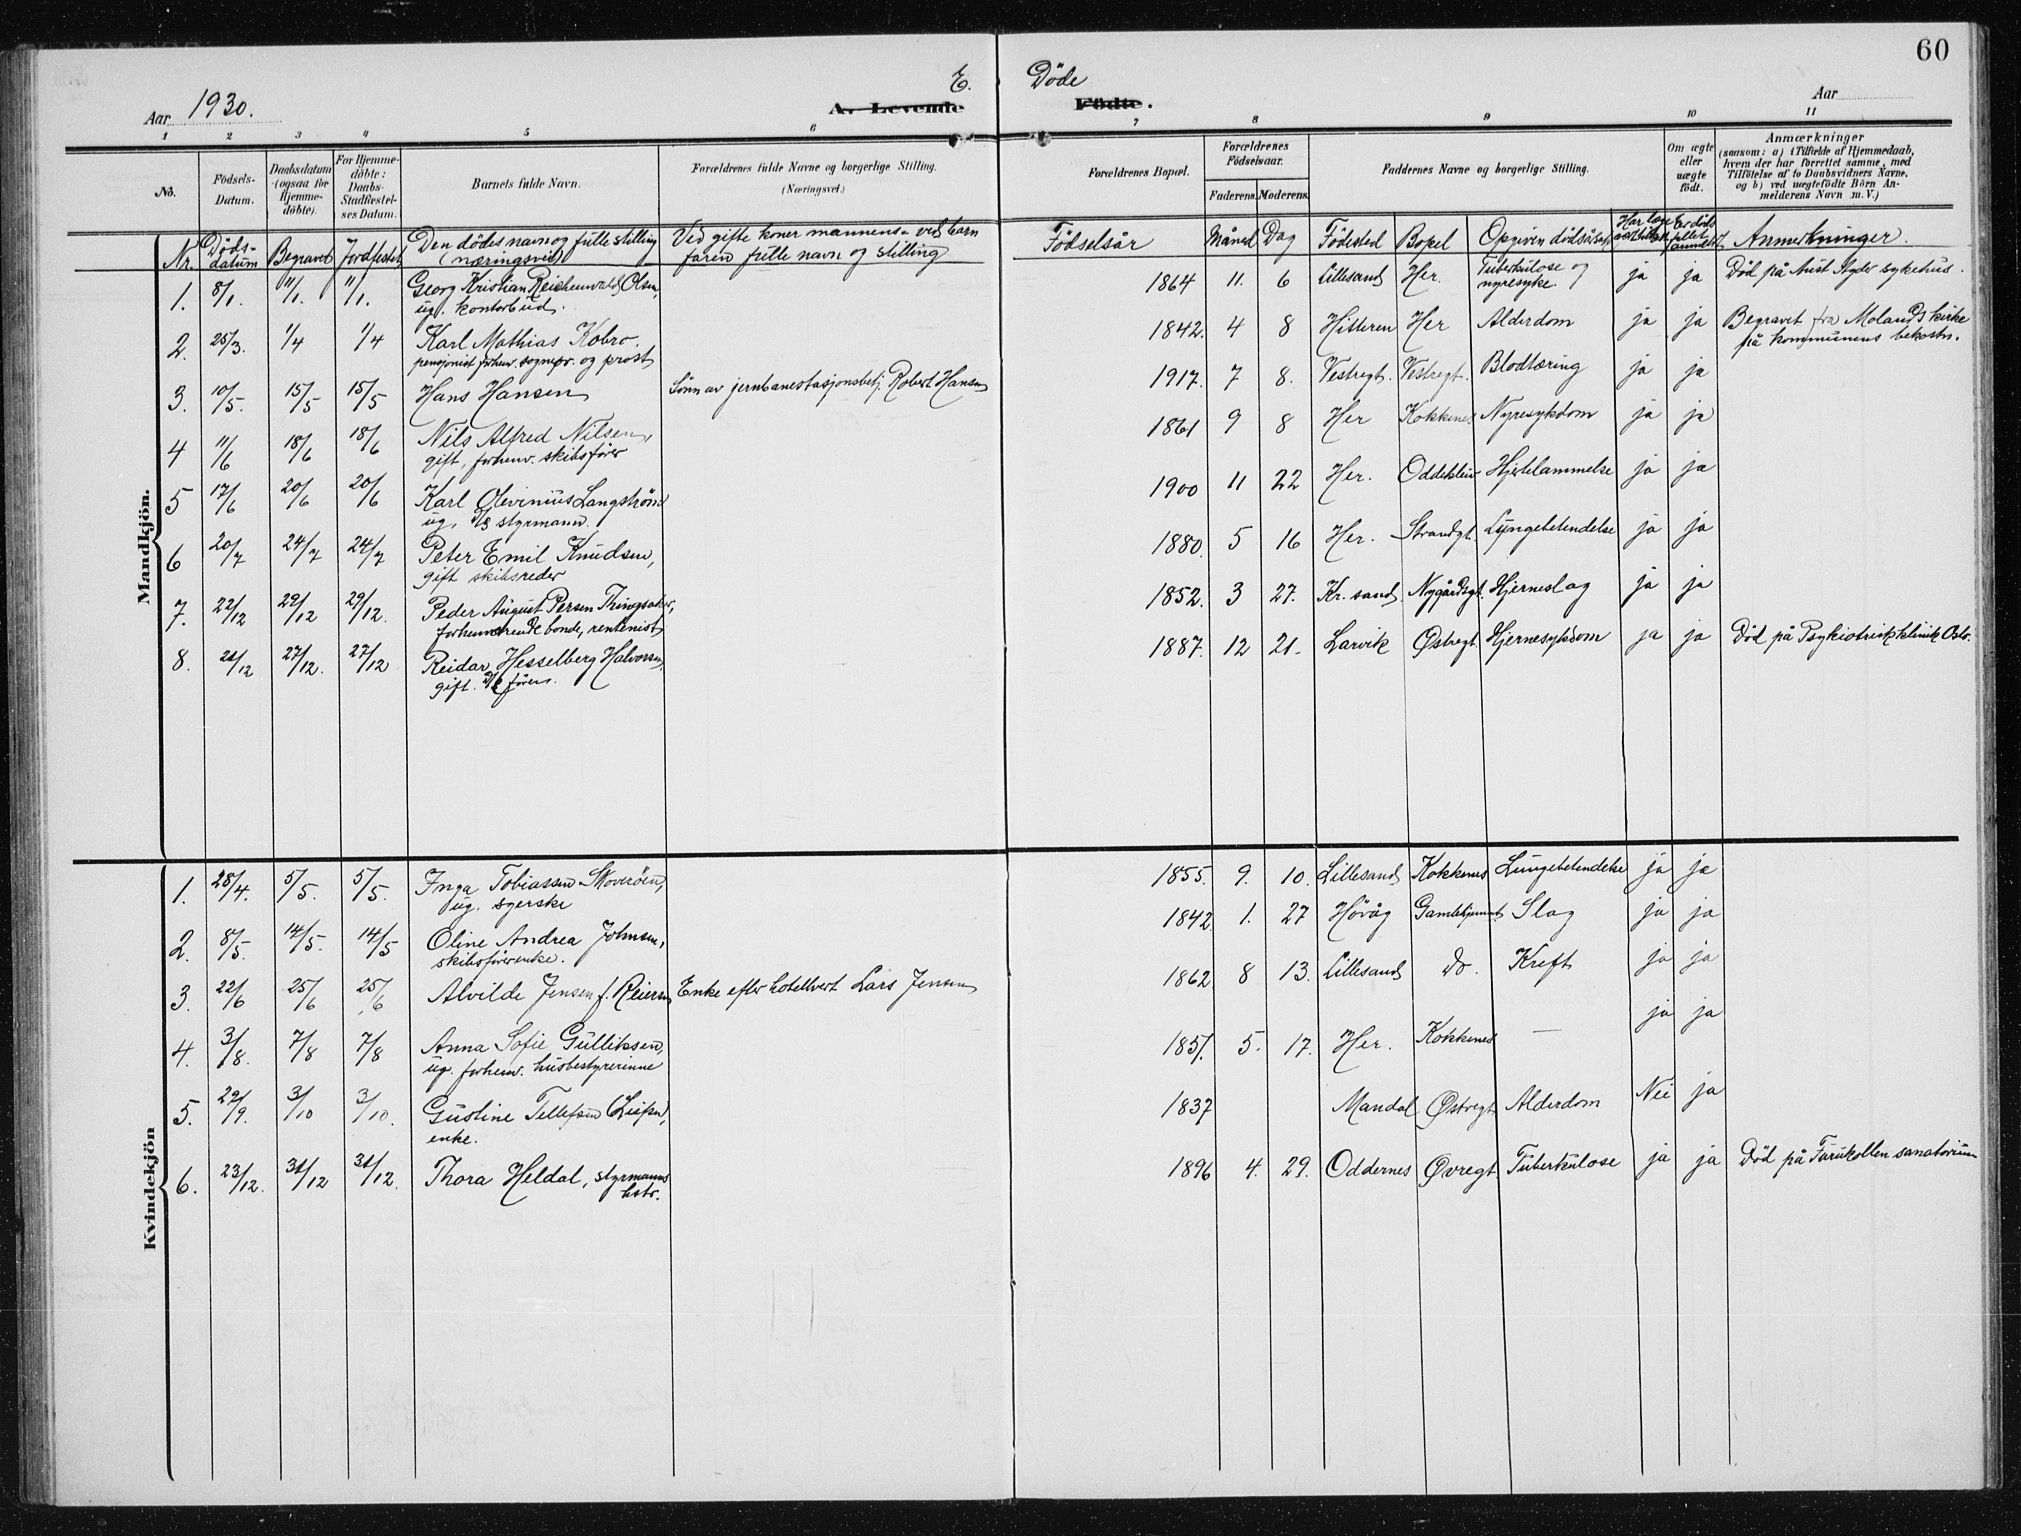 60
E. Döde
Aar 1930. A. Levende Födte. Aar
1 2 3 4 5 6 7 8 9 10 11
No. Födsels-Datum. Daabsdatum (ogsaa for Hjemme-döbte). For Hjemme-döbte: Daabs-Stadfæstel-ses Datum. Barnets fulde Navn. Forældrenes fulde Navne og borgerlige Stilling. (Næringsvei.) Forældrenes Bopæl. Forældrenes Födselsaar. Faderens. Moderens. Faddernes Navne og borgerlige Stilling. Om ægte eller uægte födt. Anmærkninger (saasom: a) i Tilfælde af Hjemmedaab, hvem der har forrettet samme, med Tilföielse af to Daabsvidners Navne, og b) ved uægtefödte Börn An-melderens Navn m.V.)
Nr. Døds-datum Begravet Jordfestet Den dødes navn og fulle stilling (næringsvei) Ved gifte koner mannens - ved barn faren fulle navn og stilling Födselsår Måned Dag Födested Bopel Opgiven dødsårsak Anmerkninger.
Mandkjön.
1. 8/1. 11/1. 11/1. Georg Kristian Reichenwald Olsen, ug. kontorbud. 1864 11. 6 Lillesand Her. Tuberkulose og nyresyke ja ja Död på Aust Agder sykehus.
2. 25/3. 1/4 1/4 Karl Mathias Kobro. pensjonist forhenv. sognepr. og prost 1842. 4 8 Hitteren Her Alderdom ja ja Begravet fra Molands kirke på kommunens bekostn.
3. 10/5. 15/5 15/5 Hans Hansen Sönn av jernbanestasjonsbetj. Robert Hansen 1917. 7 8. Vestregt. Vestregt. Blodtæring ja ja
4 11/6 18/6 18/6 Nils Alfred Nilsen, gift, forhenv. skibsfører 1861 9 8 Her Kokkenes Nyresykdom ja ja
5 17/6 20/6 20/6 Karl Olevinius Langström ug. styrmann. 1900 11 22 Her. Oddekleiv Hjertelammelse ja ja
6 20/7 24/7 24/7 Peter Emil Knudsen, gift skibsreder 1880. 5 16 Her. Strandgt. Lungebetendelse ja ja
7. 22/12 29/12 29/12. Peder August Persen Thingsaker, forhenværende bonde, rentenist 1852. 3 27. Kr. sand Nygårdsgt. Hjerneslag ja ja
8. 21/12 27/12. 27/12 Reidar Hesselberg Halvorsen, gift. fører. 1887. 12 21. Larvik Østregt. Hjernesykdom ja ja Död på Psykiatrisk klinik Oslo.
Kvindekjön
1. 28/4. 5/5. 5/5. Inga Tobiassen Skoveröen, ug. syerske 1855. 9. 10. Lillesand Kokkenes Lungebetendelse ja ja
2. 8/5. 14/5. 14/5 Oline Andrea Johnsen, skibsførerenke. 1842 1. 27 Høvåg Slag ja ja
3. 22/6 25/6 25/6 Alvilde Jensen f. Reiersen Enke efter hotellvert Lars Jensen 1862 8 13. Lillesand do. Kreft ja ja
4. 3/8. 7/8 7/8 Anna Sofie Gulliksen, ug. forhenv. husbestyrerinne 1857. 5. 17. Her. Kokkenes — ja ja
5. 29/9. 3/10 3/10. Gustine Tellefsen enke. 1837 Mandal Østregt Alderdom Nei ja
6. 23/12. 31/12 31/12. Thora Heldal, styrmanns hstr. 1896 4. 29. Oddernes Øvregt. Tuberkulose ja ja Död på Farukollen sanatorium